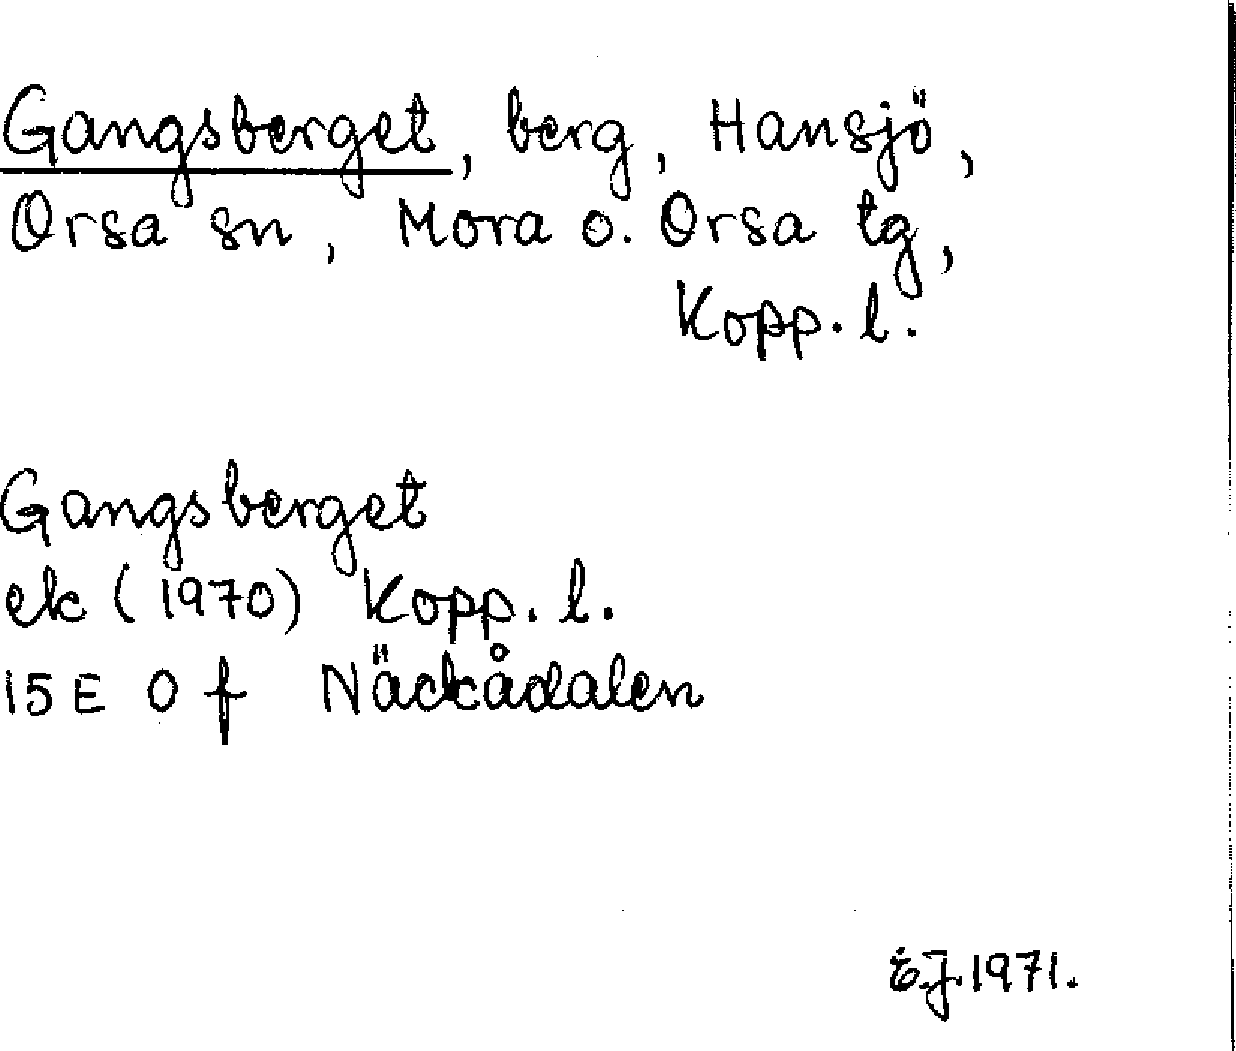 Gangsberget, berg, Hansjö,
Orsa sn, Mora o. Orsa tg,
Kopp. l.
Gangsberget
ek (1970) Kopp. l.
15 E 0 f Näckådalen
1971.